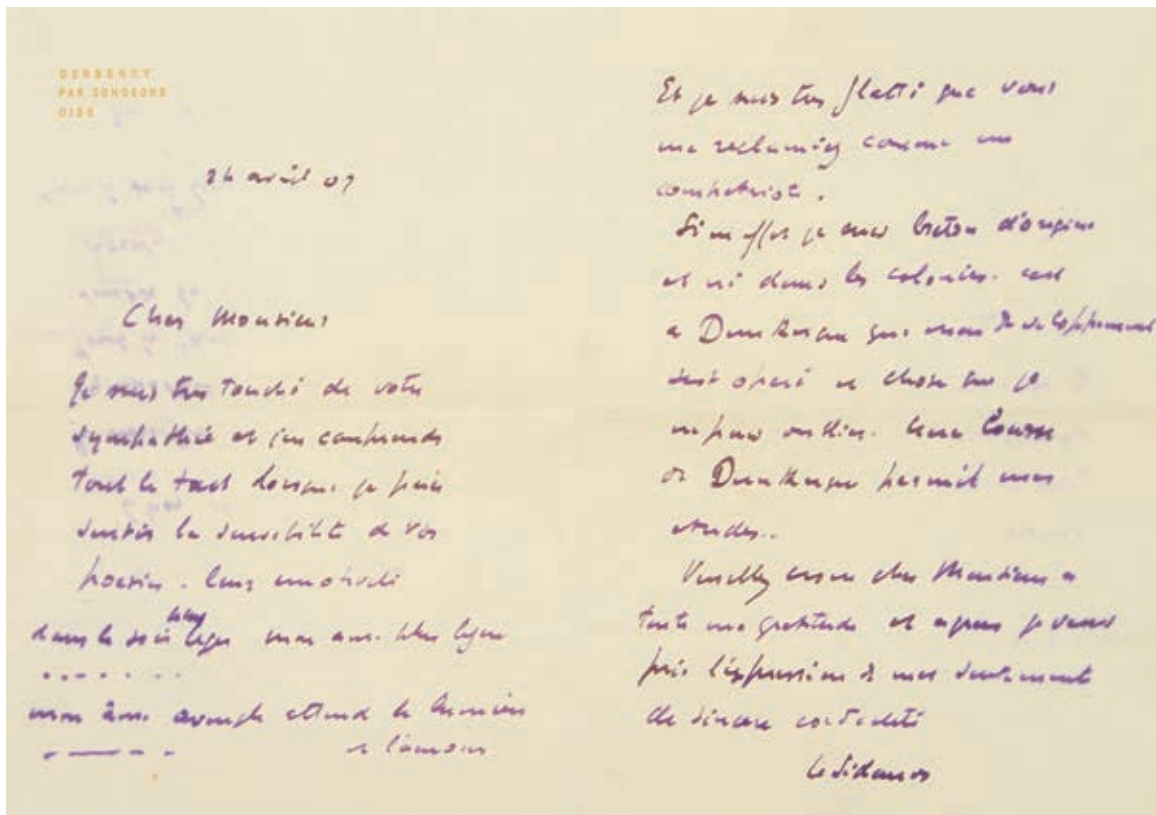 GERBEROY
PAR SONGEONS
OISE
24 avril 09
Cher Monsieur
Je suis très touché de votre
sympathie et j'en comprends
tout le tact lorsque je puis
sentir la sensibilité de vos
poesies. leur emotivité
dans le soir léger mon ame plus légère
.......
mon âme aveugle attend la lumière
et l'amour
Et je suis très flatté que vous
me reclamiez comme un
compatriote.
Si en effet je suis breton d'origine
et né dans les colonies. c'est
a Dunkerque que mon développement
s'est opéré et chose que je
ne puis oublier. une bourse
de Dunkerque permit mes
etudes..
Veuillez croire cher Monsieur a
toute ma gratitude et agreer je vous
prie l'expression de mes sentiments
de sincere cordialité
Le Sidaner